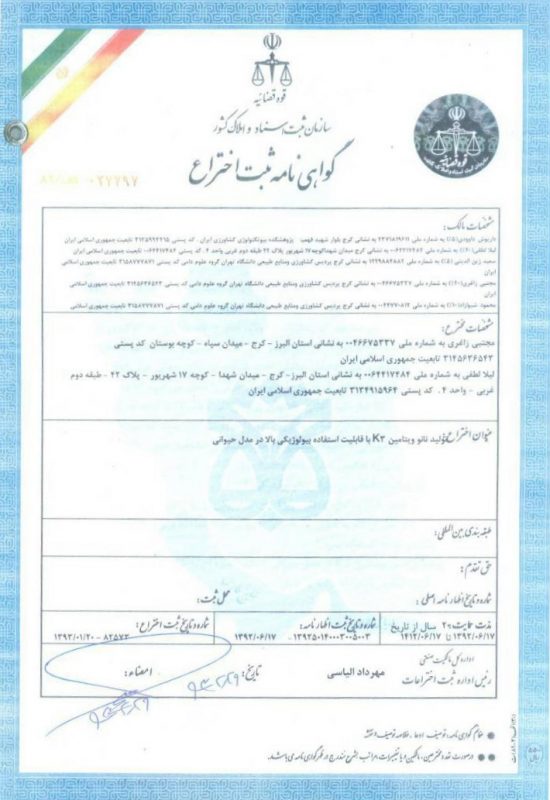 قوه قضائیه
سازمان ثبت اسناد و املاک کشور
گواهی نامه ثبت اختراع
مشخصات مالک:
داریوش داوودی(۵٪) به شماره ملی به نشانی کرج بلوار شهید فهمیده پژوهشکده بیوتکنولوژی کشاورزی ایران، کد پستی ۳۱۳۵۹۹۳۳۱۵ تابعیت جمهوری اسلامی ایران
لیلا لطفی(۴۰٪) به شماره ملی ۰۰۶۴۴۱۷۲۸۴ به نشانی کرج میدان شهداکوچه۱۷ شهریور پلاک ۴۲ طبقه دوم غربی واحد ۴، کد پستی تابعیت جمهوری اسلامی ایران
سعید زین الدینی (۵٪) به شماره ملی به نشانی کرج پردیس کشاورزی ومنابع طبیعی دانشگاه تهران گروه علوم دامی کد پستی ۳۱۵۸۷۷۷۸۷۱ تابعیت جمهوری اسلامی ایران
مجتبی زاغری(۴۰٪) به شماره ملی ۰۰۴۶۶۷۵۳۳۷ به نشانی کرج پردیس کشاورزی ومنابع طبیعی دانشگاه تهران گروه علوم دامی کد پستی ۳۱۴۵۶۳۶۵۴۳ تابعیت جمهوری اسلامی ایران
محمود به شماره ملی به نشانی کرج پردیس کشاورزی ومنابع طبیعی دانشگاه تهران گروه علوم دامی کد پستی ۳۱۵۸۷۷۷۸۷۱ تابعیت جمهوری اسلامی
مشخصات مخترع:
مجتبی زاغری به شماره ملی ۰۰۴۶۶۷۵۳۳۷ به نشانی استان البرز - کرج - میدان سپاه - کوچه بوستان کد پستی
۳۱۴۵۶۳۶۵۴۳ تابعیت جمهوری اسلامی ایران
لیلا لطفی به شماره ملی ۰۰۶۴۴۱۷۲۸۴ به نشانی استان البرز - کرج - میدان شهدا - کوچه ۱۷ شهریور - پلاک ۴۲ - طبقه دوم
غربی - واحد ۴، کد پستی ۳۱۳۴۹۱۵۹۶۴ تابعیت جمهوری اسلامی ایران
عنوان اختراع: تولید نانو ویتامین K۳ با قابلیت استفاده بیولوژیکی بالا در مدل حیوانی
طبقه بندی بین المللی:
حق تقدم:
شماره و تاریخ اظهارنامه اصلی: محل ثبت:
مدت حمایت: ۲۰ سال از تاریخ شماره و تاریخ ثبت اظهارنامه: شماره و تاریخ ثبت اختراع:
۱۳۹۲/۰۶/۱۷ تا ۱۴۱۲/۰۶/۱۷ ۱۳۹۲۵۰۱۴۰۰۰۳۰۰۵۰۰۳ - ۱۳۹۲/۰۶/۱۷ ۸۲۵۷۲ - ۱۳۹۳/۰۱/۲۰
اداره کل مالکیت صنعتی
رئیس اداره ثبت اختراعات مهرداد الیاسی تاریخ: امضاء:
ضمائم گواهی نامه: توصیف ادعا، خلاصه توصیف و نقشه
در صورت تعدد مخترعین، مالکین و یا تغییرات، مراتب به شرح مندرج در ظهر گواهی نامه می باشد.